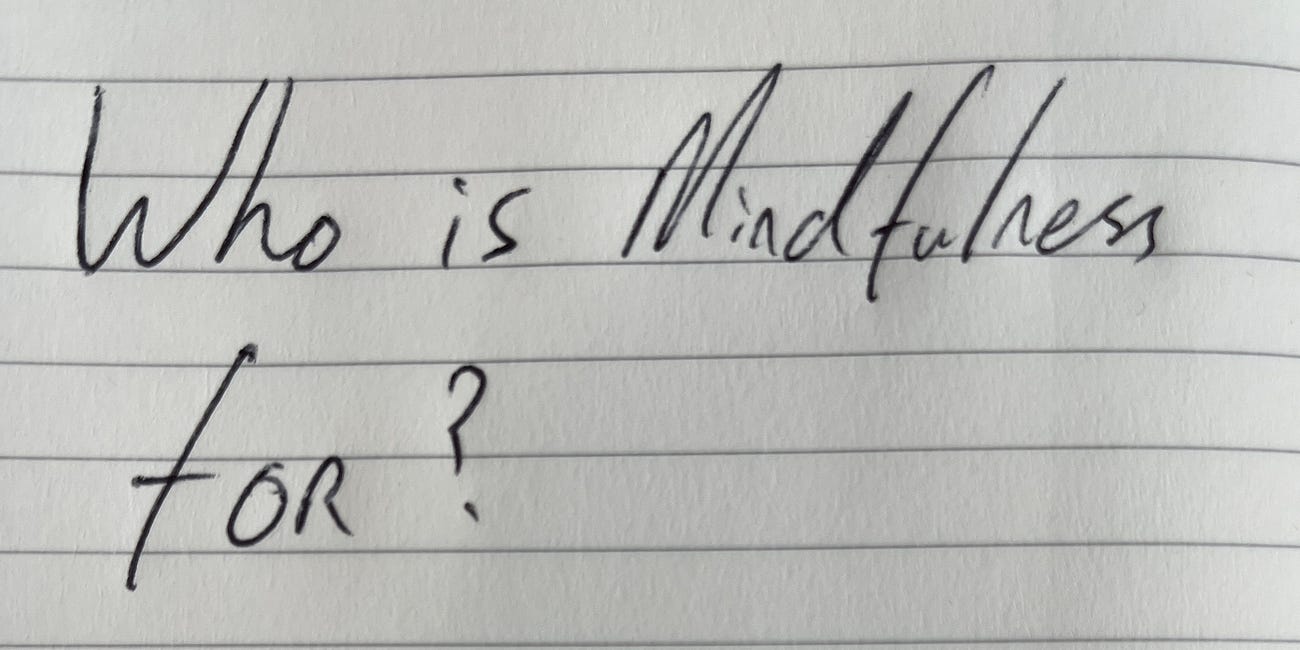 Who is Mindfulness
for?